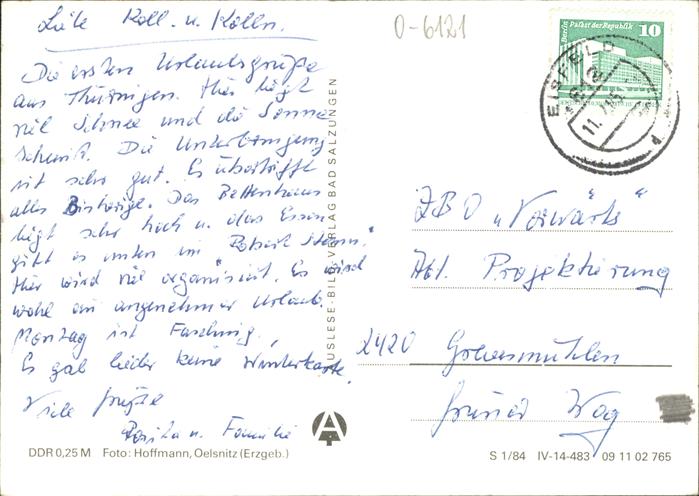 O-6121
Liebe Koll. u. Kolln.
Die ersten Urlaubsgrüße
aus Thüringen. Hier liegt
viel Schnee und die Sonne
scheint. Die Unterbringung
ist sehr gut. Es übertrifft
alles Bisherige. Das Bettenhaus
liegt sehr hoch u. das Essen
gibt es unten im "Robert Stamm".
Hier wird viel organisiert. Es wird
wohl ein angenehmer Urlaub.
Montag ist Fasching.
Es gab leider keine Winterkarte.
Viele Grüße
u. Familie
DDR 0,25 M Foto: Hoffmann, Oelsnitz (Erzgeb.)
AUSLESE-BILD-VERLAG BAD SALZUNGEN
A
Berlin Palast der Republik 10
EISFELD
11.
d
ZBO "Vorwärts"
Abt. Projektierung
2420 Grevesmühlen
Grüner Weg
S 1/84 IV-14-483 09 11 02 765